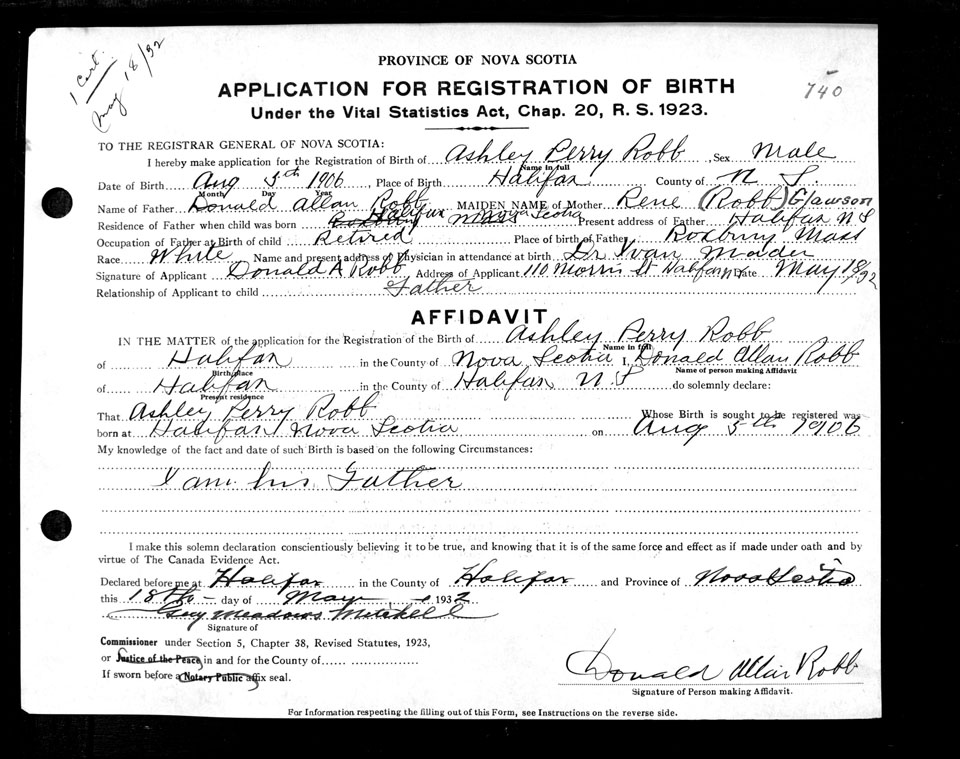 1 Cert.
May 18/32
740
PROVINCE OF NOVA SCOTIA
APPLICATION FOR REGISTRATION OF BIRTH
Under the Vital Statistics Act, Chap. 20, R. S. 1923.
TO THE REGISTRAR GENERAL OF NOVA SCOTIA:
I hereby make application for the Registration of Birth of Ashley Perry Robb, Sex Male
Name in full
Date of Birth Aug 5th 1906 Place of Birth Halifax County of N S.
Month Day Year
Name of Father Donald Allan Robb MAIDEN NAME of Mother Rene (Robb) Glawson
Residence of Father when child was born Roxbury Mass Halifax Nova Scotia Present address of Father Halifax N S
Occupation of Father at Birth of child Retired Place of birth of Father Roxbury Mass
Race White Name and present address of Physician in attendance at birth Dr Ivan Mader
Signature of Applicant Donald A Robb Address of Applicant 110 Morris St Halifax Date May 18/32
Relationship of Applicant to child Father
AFFIDAVIT
IN THE MATTER of the application for the Registration of the Birth of Ashley Perry Robb
Name in full
of Halifax in the County of Nova Scotia I, Donald Allan Robb
Birthplace Name of person making Affidavit
of Halifax in the County of Halifax N S do solemnly declare:
Present residence
That Ashley Perry Robb Whose Birth is sought to be registered was
born at Halifax Nova Scotia on Aug 5th 1906
My knowledge of the fact and date of such Birth is based on the following Circumstances:
I am his Father
I make this solemn declaration conscientiously believing it to be true, and knowing that it is of the same force and effect as if made under oath and by
virtue of The Canada Evidence Act.
Declared before me at Halifax in the County of Halifax and Province of Nova Scotia
this 18th day of May 1932
Guy Meadows Mitchell
Signature of
Commissioner under Section 5, Chapter 38, Revised Statutes, 1923,
or Justice of the Peace in and for the County of
If sworn before a Notary Public affix seal.
Donald Allan Robb
Signature of Person making Affidavit.
For Information respecting the filling out of this Form, see Instructions on the reverse side.